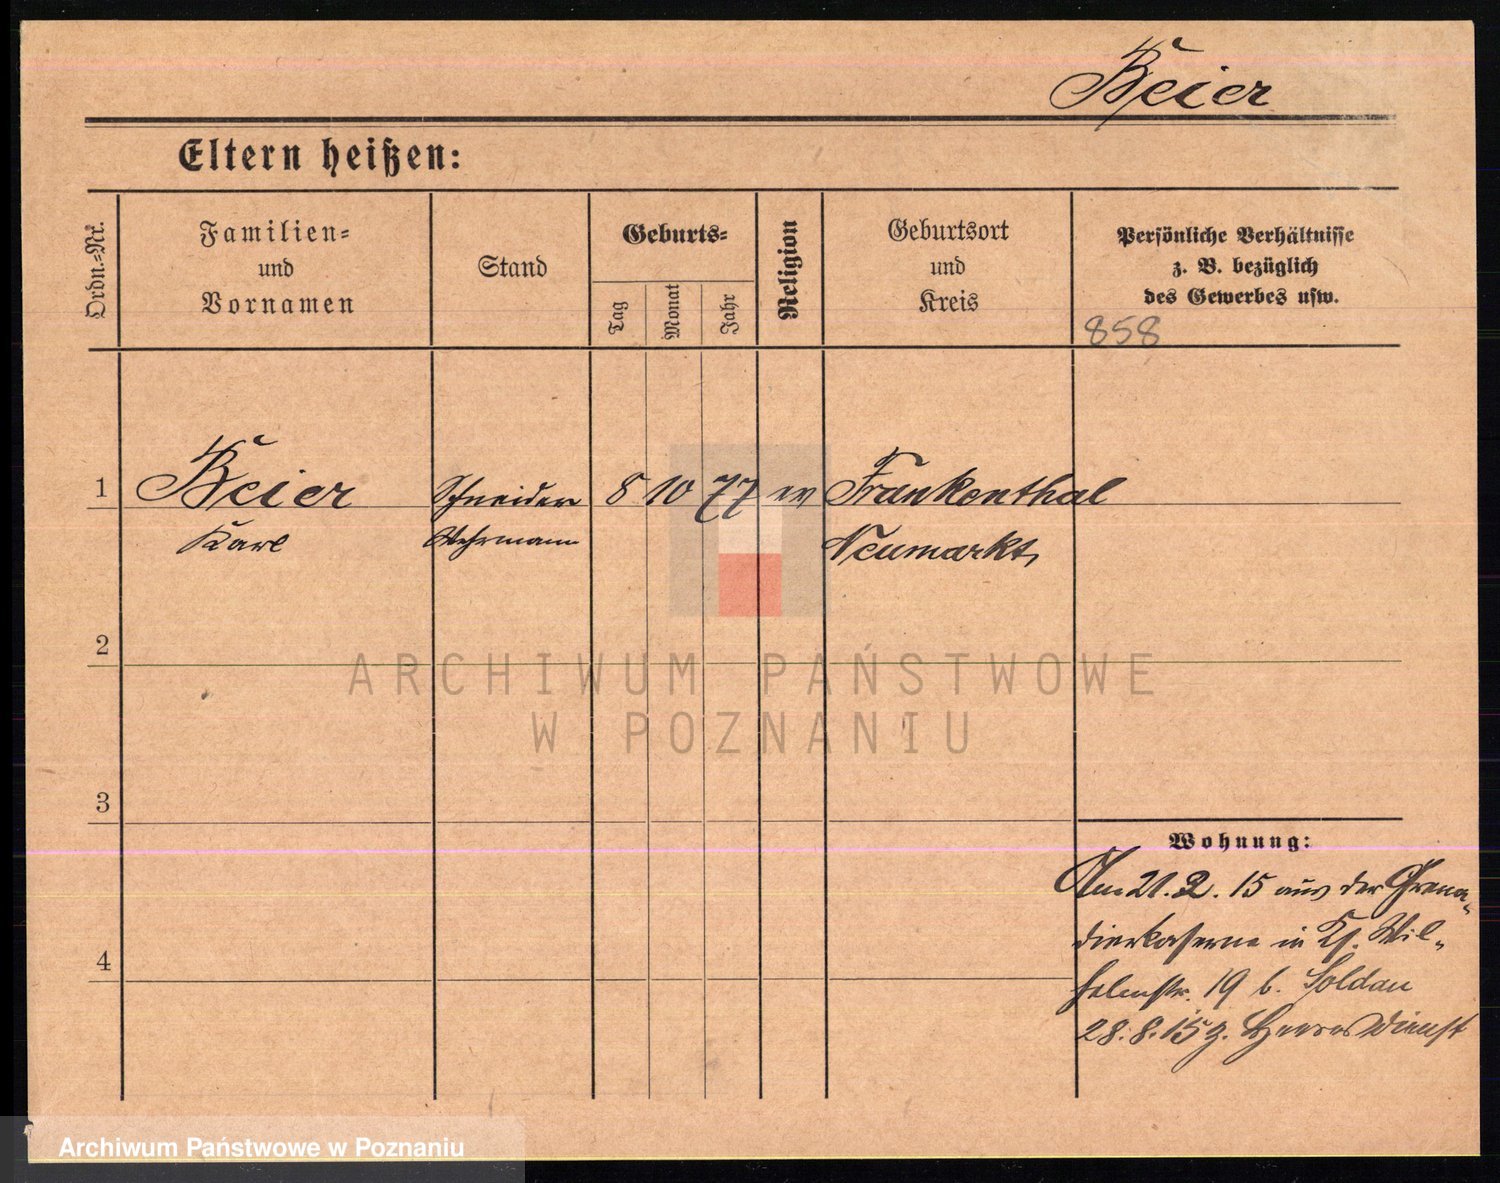 Beier
Eltern heißen:
Ordn.-Nr.
Familien-
und
Vornamen
Stand
Geburts-
Tag
Monat
Jahr
Religion
Geburtsort
und
Kreis
Persönliche Verhältnisse
z. B. bezüglich
des Gewerbes usw.
858
1 Beier Schneider 8 10 77 ev Frankenthal
Karl Wehrmann Neumarkt
2
ARCHIWUM PAŃSTWOWE
W POZNANIU
3
Wohnung:
Am 21. 2. 15 aus der Grena-
dierkaserne in Ks. Wil-
4
helmstr. 19 b. Soldau
28.8.15 z. Heeresdienst
Archiwum Państwowe w Poznaniu